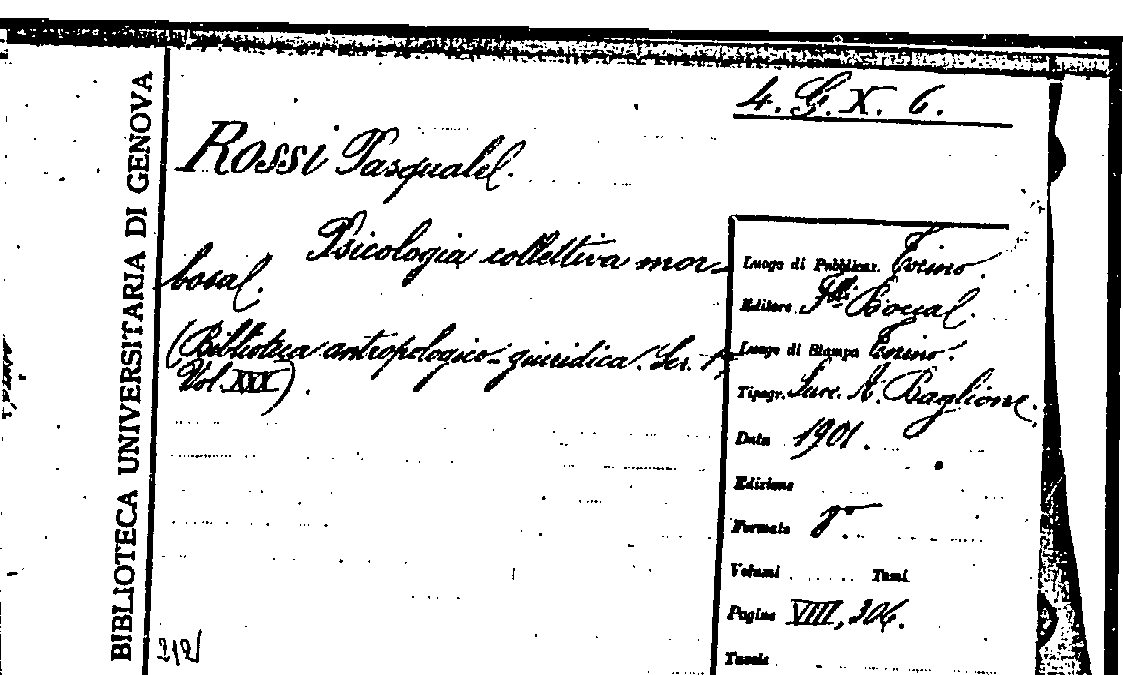 BIBLIOTECA UNIVERSITARIA DI GENOVA
4. G. X. 6.
Rossi Pasquale.
Psicologia collettiva mor-
bosa.
(Biblioteca antropologico-giuridica. Ser. 1,
Vol. XXX).
Luogo di Pubblicaz. Torino.
Editore Flli Bocca.
Luogo di Stampa Torino.
Tipogr. Succ. A. Baglione.
Data 1901.
Edizione
Formato 8°.
Volumi Tomi
Pagine VIII, 306.
Tavole
212